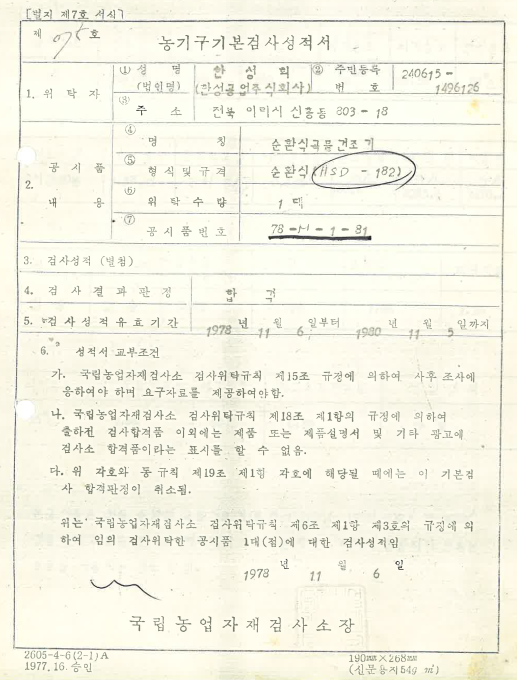 [별지 제7호 서식]
제 075 호
농기구기본검사성적서
1. 위탁자
① 성 명 (법인명)
한성희 (한성공업주식회사)
② 주민등록번호
240615-1496126
③ 주 소
전북 이리시 신흥동 803-18
2. 공시품 내용
④ 명 칭
순환식곡물건조기
⑤ 형식및규격
순환식(HSD-182)
⑥ 위탁수량
1 대
⑦ 공시품번호
78-H-1-81
3. 검사성적 (별첨)
4. 검사결과판정
합 격
5. 검사성적유효기간
1978년 11월 6일부터 1980년 11월 5일까지
6. 성적서 교부조건
가. 국립농업자재검사소 검사위탁규칙 제15조 규정에 의하여 사후조사에
응하여야 하며 요구자료를 제공하여야함.
나. 국립농업자재검사소 검사위탁규칙 제18조 제1항의 규정에 의하여
출하전 검사합격품 이외에는 제품 또는 제품설명서 및 기타 광고에
검사소 합격품이라는 표시를 할 수 없음.
다. 위 각호와 동규칙 제19조 제1항 각호에 해당될 때에는 이 기본검
사 합격판정이 취소됨.
위는 국립농업자재검사소 검사위탁규칙 제6조 제1항 제3호의 규정에 의
하여 임의 검사위탁한 공시품 1대(점)에 대한 검사성적임
1978 년 11 월 6 일
국립농업자재검사소장
2605-4-6(2-1)A
1977.16. 승인
190mm×268mm
(신문용지54g/㎡)